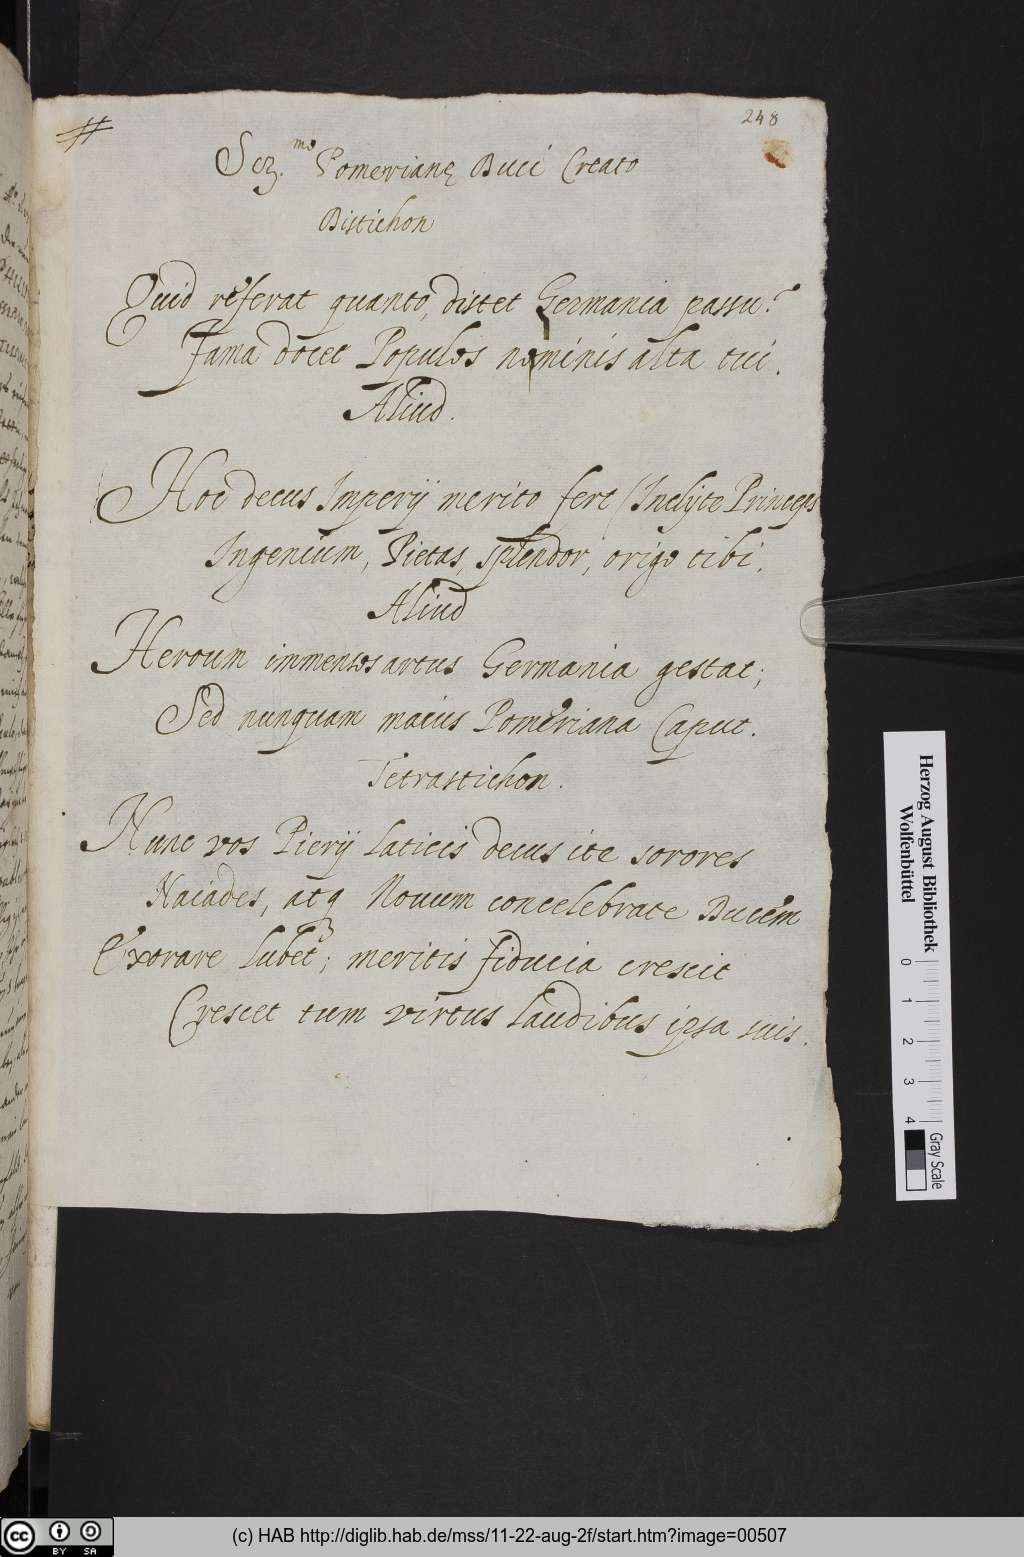 248
Ser.mo Pomerianę Duci Creato
Distichon
Quid referat quanto, distet Germania passu?
Fama docet Populos nominis alta tui.
Aliud.
Hoc decus Imperij merito fert (Inclyte Princeps
Ingenium, Pietas, splendor, origo tibi.
Aliud
Heroum immensos artus Germania gestat;
Sed nunquam maius Pomeriana Caput.
Tetrastichon.
Nunc vos Pierij laticis decus ite sorores
Naiades, atq Nouum concelebrate Ducem
Exorare lubet; meritis fiducia crescit
Crescet tum virtus laudibus ipsa suis.
Herzog August Bibliothek
Wolfenbüttel
0 1 2 3 4
Gray Scale
(c) HAB http://diglib.hab.de/mss/11-22-aug-2f/start.htm?image=00507
cc BY SA